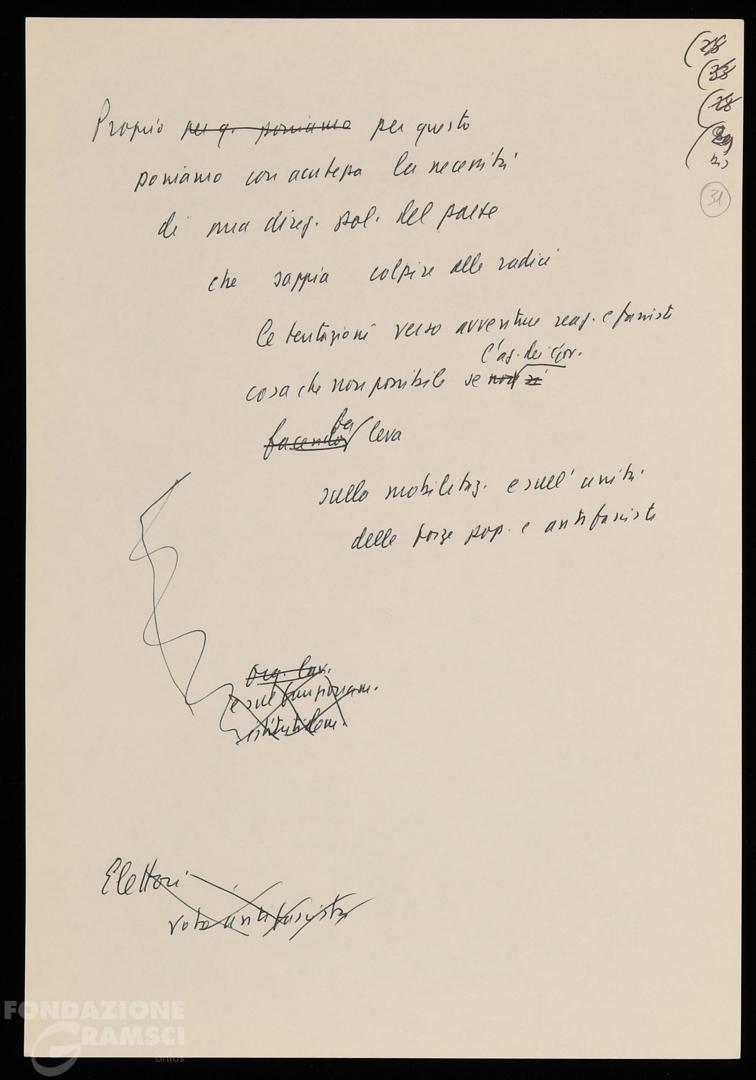 (28
(33
(28
(29
bis)
31
Proprio per q. poniamo per questo
poniamo con acutezza la necessità
di una direz. pol. del paese
che sappia colpire alle radici
le tentazioni verso avventure reaz. e fasciste
l'az. dei gov.
cosa che non possibile se non si
facendo fa leva
sulla mobilitaz. e sull'unità
delle forze pop. e antifasciste
Org. lav.
e sul funzionam.
istituti dem.
Elettori
voto antifascista
FONDAZIONE
GRAMSCI
onlus